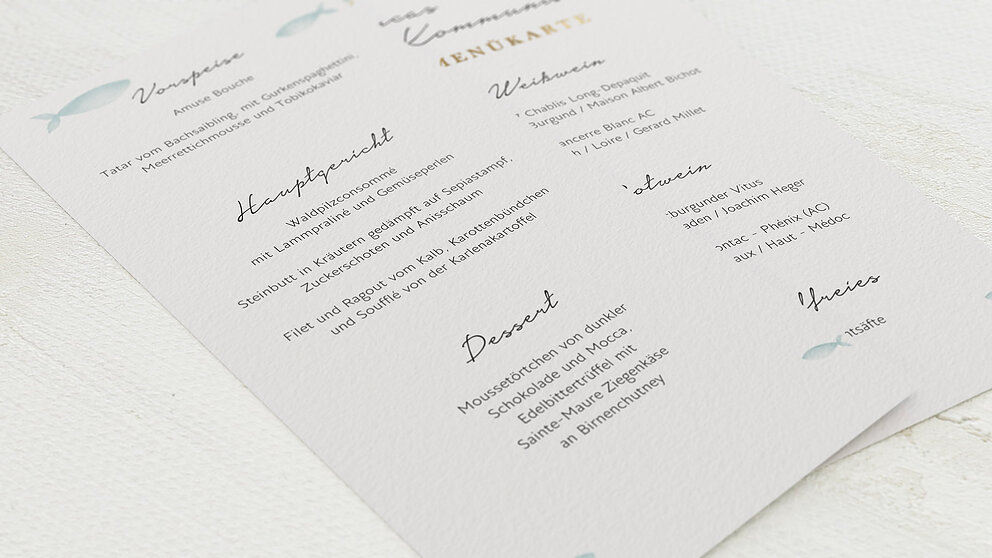 Kommuni
MENÜKARTE
Vorspeise
Amuse Bouche
Tatar vom Bachsaibling, mit Gurkenspaghettini,
Meerrettichmousse und Tobikokaviar
Hauptgericht
Waldpilzconsommé
mit Lammpraliné und Gemüseperlen
Steinbutt in Kräutern gedämpft auf Sepiastampf,
Zuckerschoten und Anisschaum
Filet und Ragout vom Kalb, Karottenbündchen
und Soufflé von der Karlenakartoffel
Dessert
Moussetörtchen von dunkler
Schokolade und Mocca,
Edelbittertrüffel mit
Sainte-Maure Ziegenkäse
an Birnenchutney
Weißwein
Chablis Long-Depaquit
Burgund / Maison Albert Bichot
ancerre Blanc AC
h / Loire / Gerard Millet
otwein
burgunder Vitus
aden / Joachim Heger
ontac - Phénix (AC)
aux / Haut - Médoc
freies
tsäfte